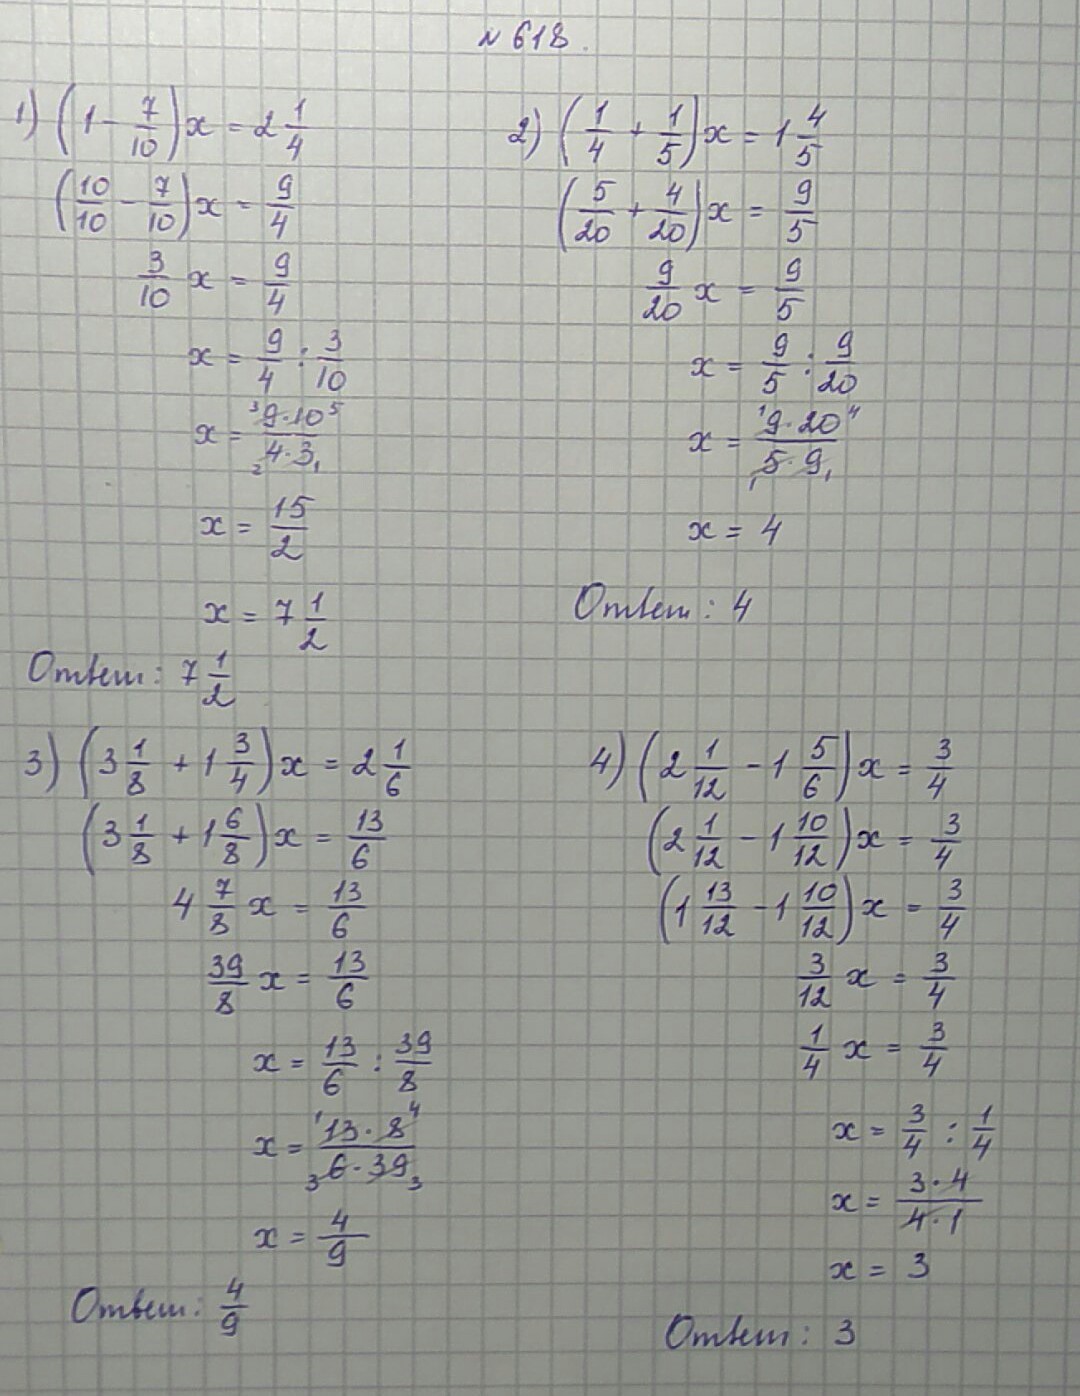 № 618.
1) (1 - 7/10)x = 2 1/4
(10/10 - 7/10)x = 9/4
3/10 x = 9/4
x = 9/4 : 3/10
x = ³9·10⁵/₂4·3₁
x = 15/2
x = 7 1/2
Ответ: 7 1/2
2) (1/4 + 1/5)x = 1 4/5
(5/20 + 4/20)x = 9/5
9/20 x = 9/5
x = 9/5 : 9/20
x = ¹9·20⁴/₁5·9₁
x = 4
Ответ: 4
3) (3 1/8 + 1 3/4)x = 2 1/6
(3 1/8 + 1 6/8)x = 13/6
4 7/8 x = 13/6
39/8 x = 13/6
x = 13/6 : 39/8
x = ¹13·8⁴/₃6·39₃
x = 4/9
Ответ: 4/9
4) (2 1/12 - 1 5/6)x = 3/4
(2 1/12 - 1 10/12)x = 3/4
(1 13/12 - 1 10/12)x = 3/4
3/12 x = 3/4
1/4 x = 3/4
x = 3/4 : 1/4
x = 3·4/4·1
x = 3
Ответ: 3